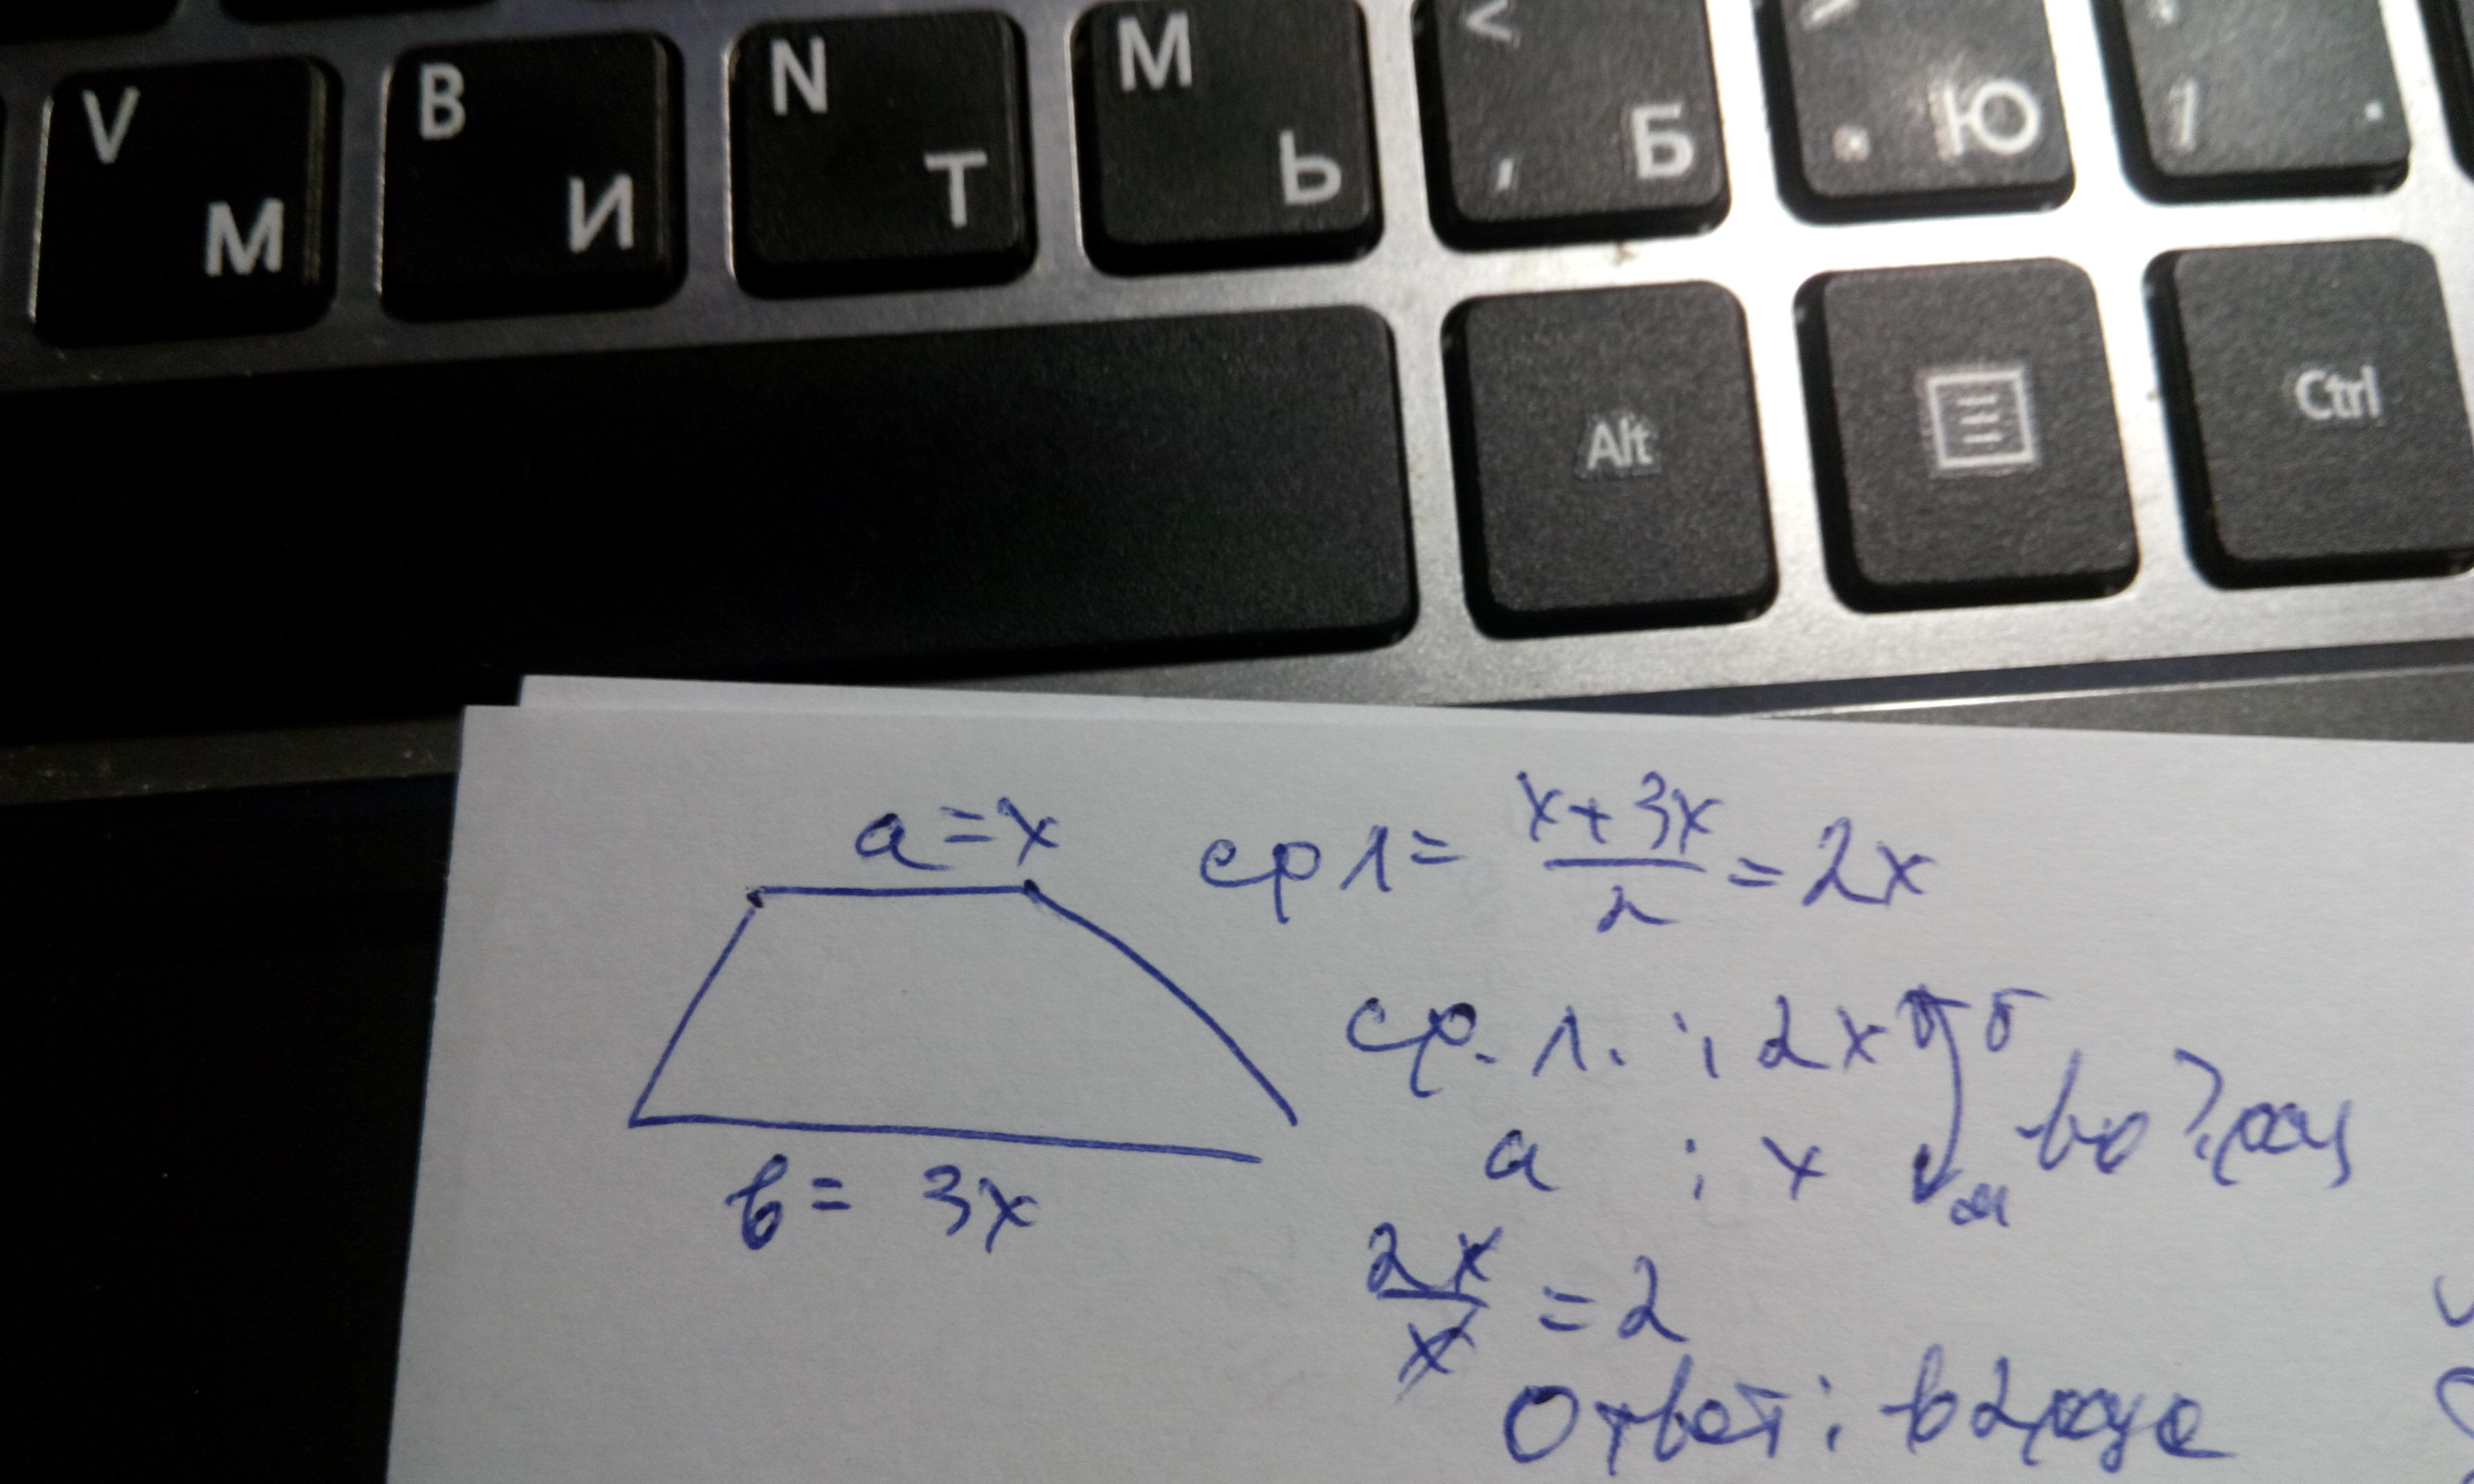 V B N M <
М И Т Ь , Б . Ю / .
Alt Ctrl
a = x
ср л = x + 3x / 2 = 2x
ср. л. : 2x б
a : x м во ? раз
b = 3x
2x / x = 2
Ответ: в 2 раза